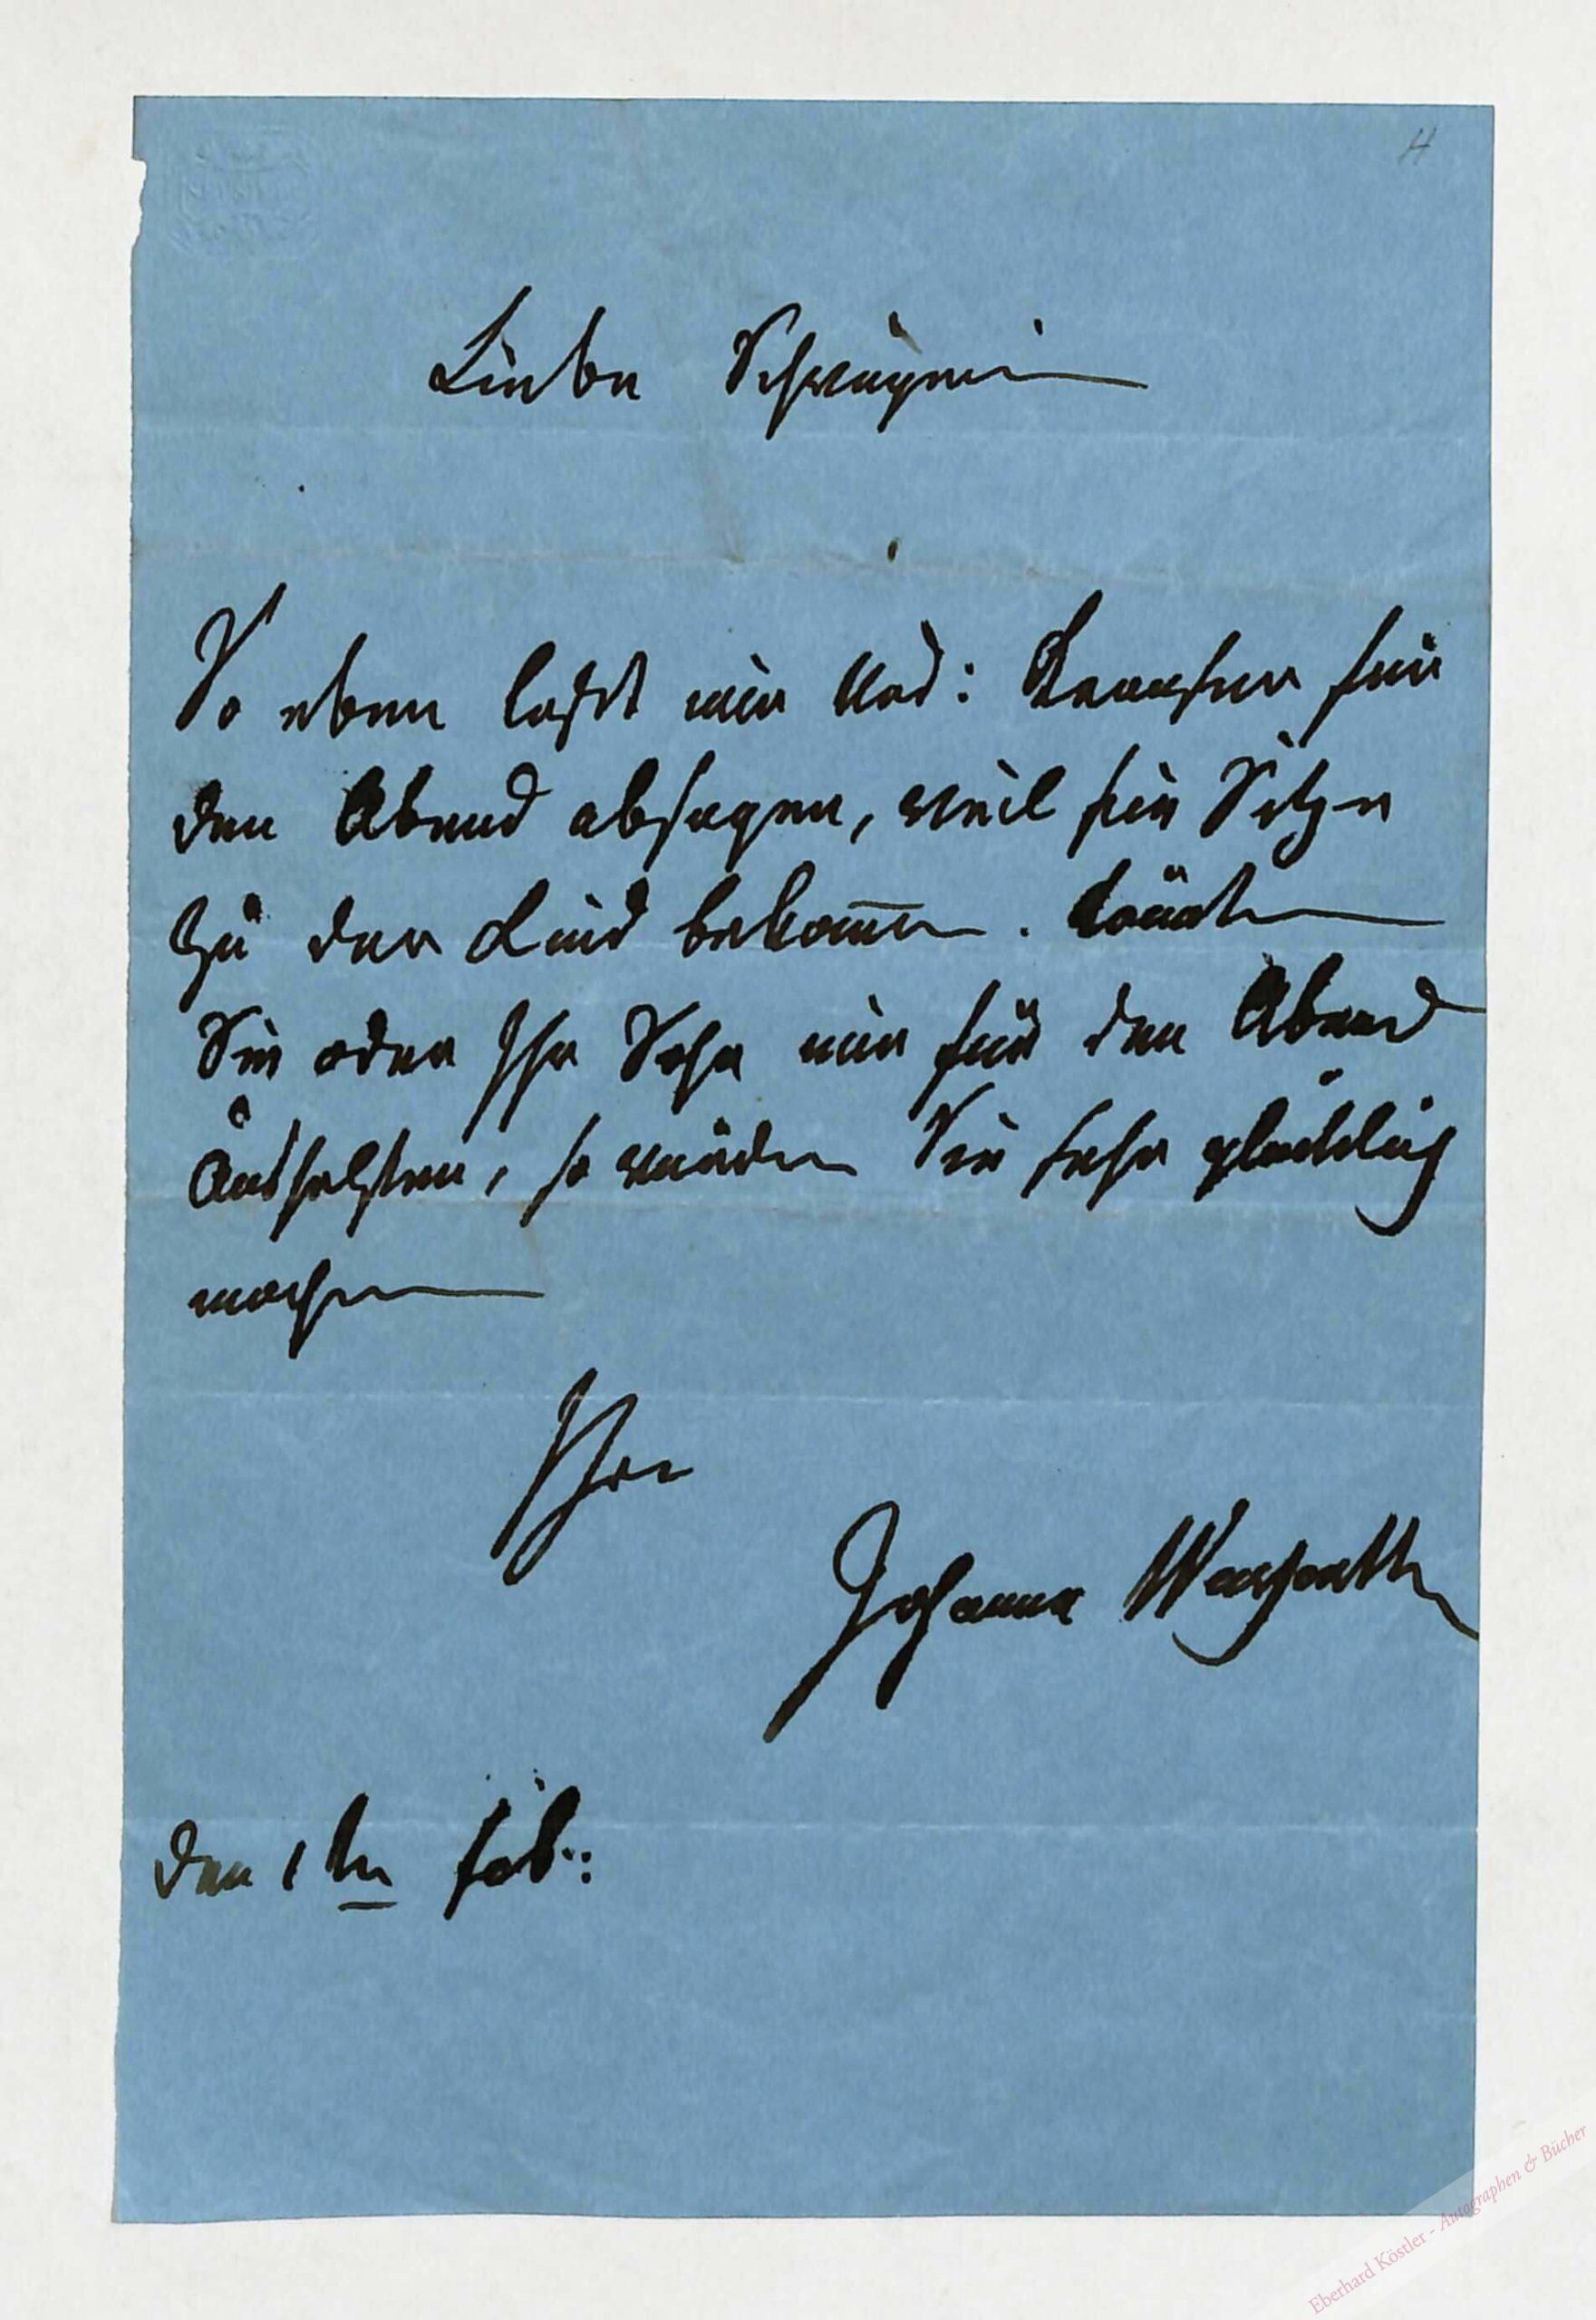 H
Liebe Schwägerin
So eben laßt mir Mad: für
den Abend absagen, weil sie Sitze
zu der Lind bekommen. Könnten
Sie oder Ihr Sohn mir für den Abend
Aushelfen, so würden Sie sehr glücklich
machen
Ihre
Johanna
den 1 ten Feb:
Eberhard Köstler - Autographen & Bücher